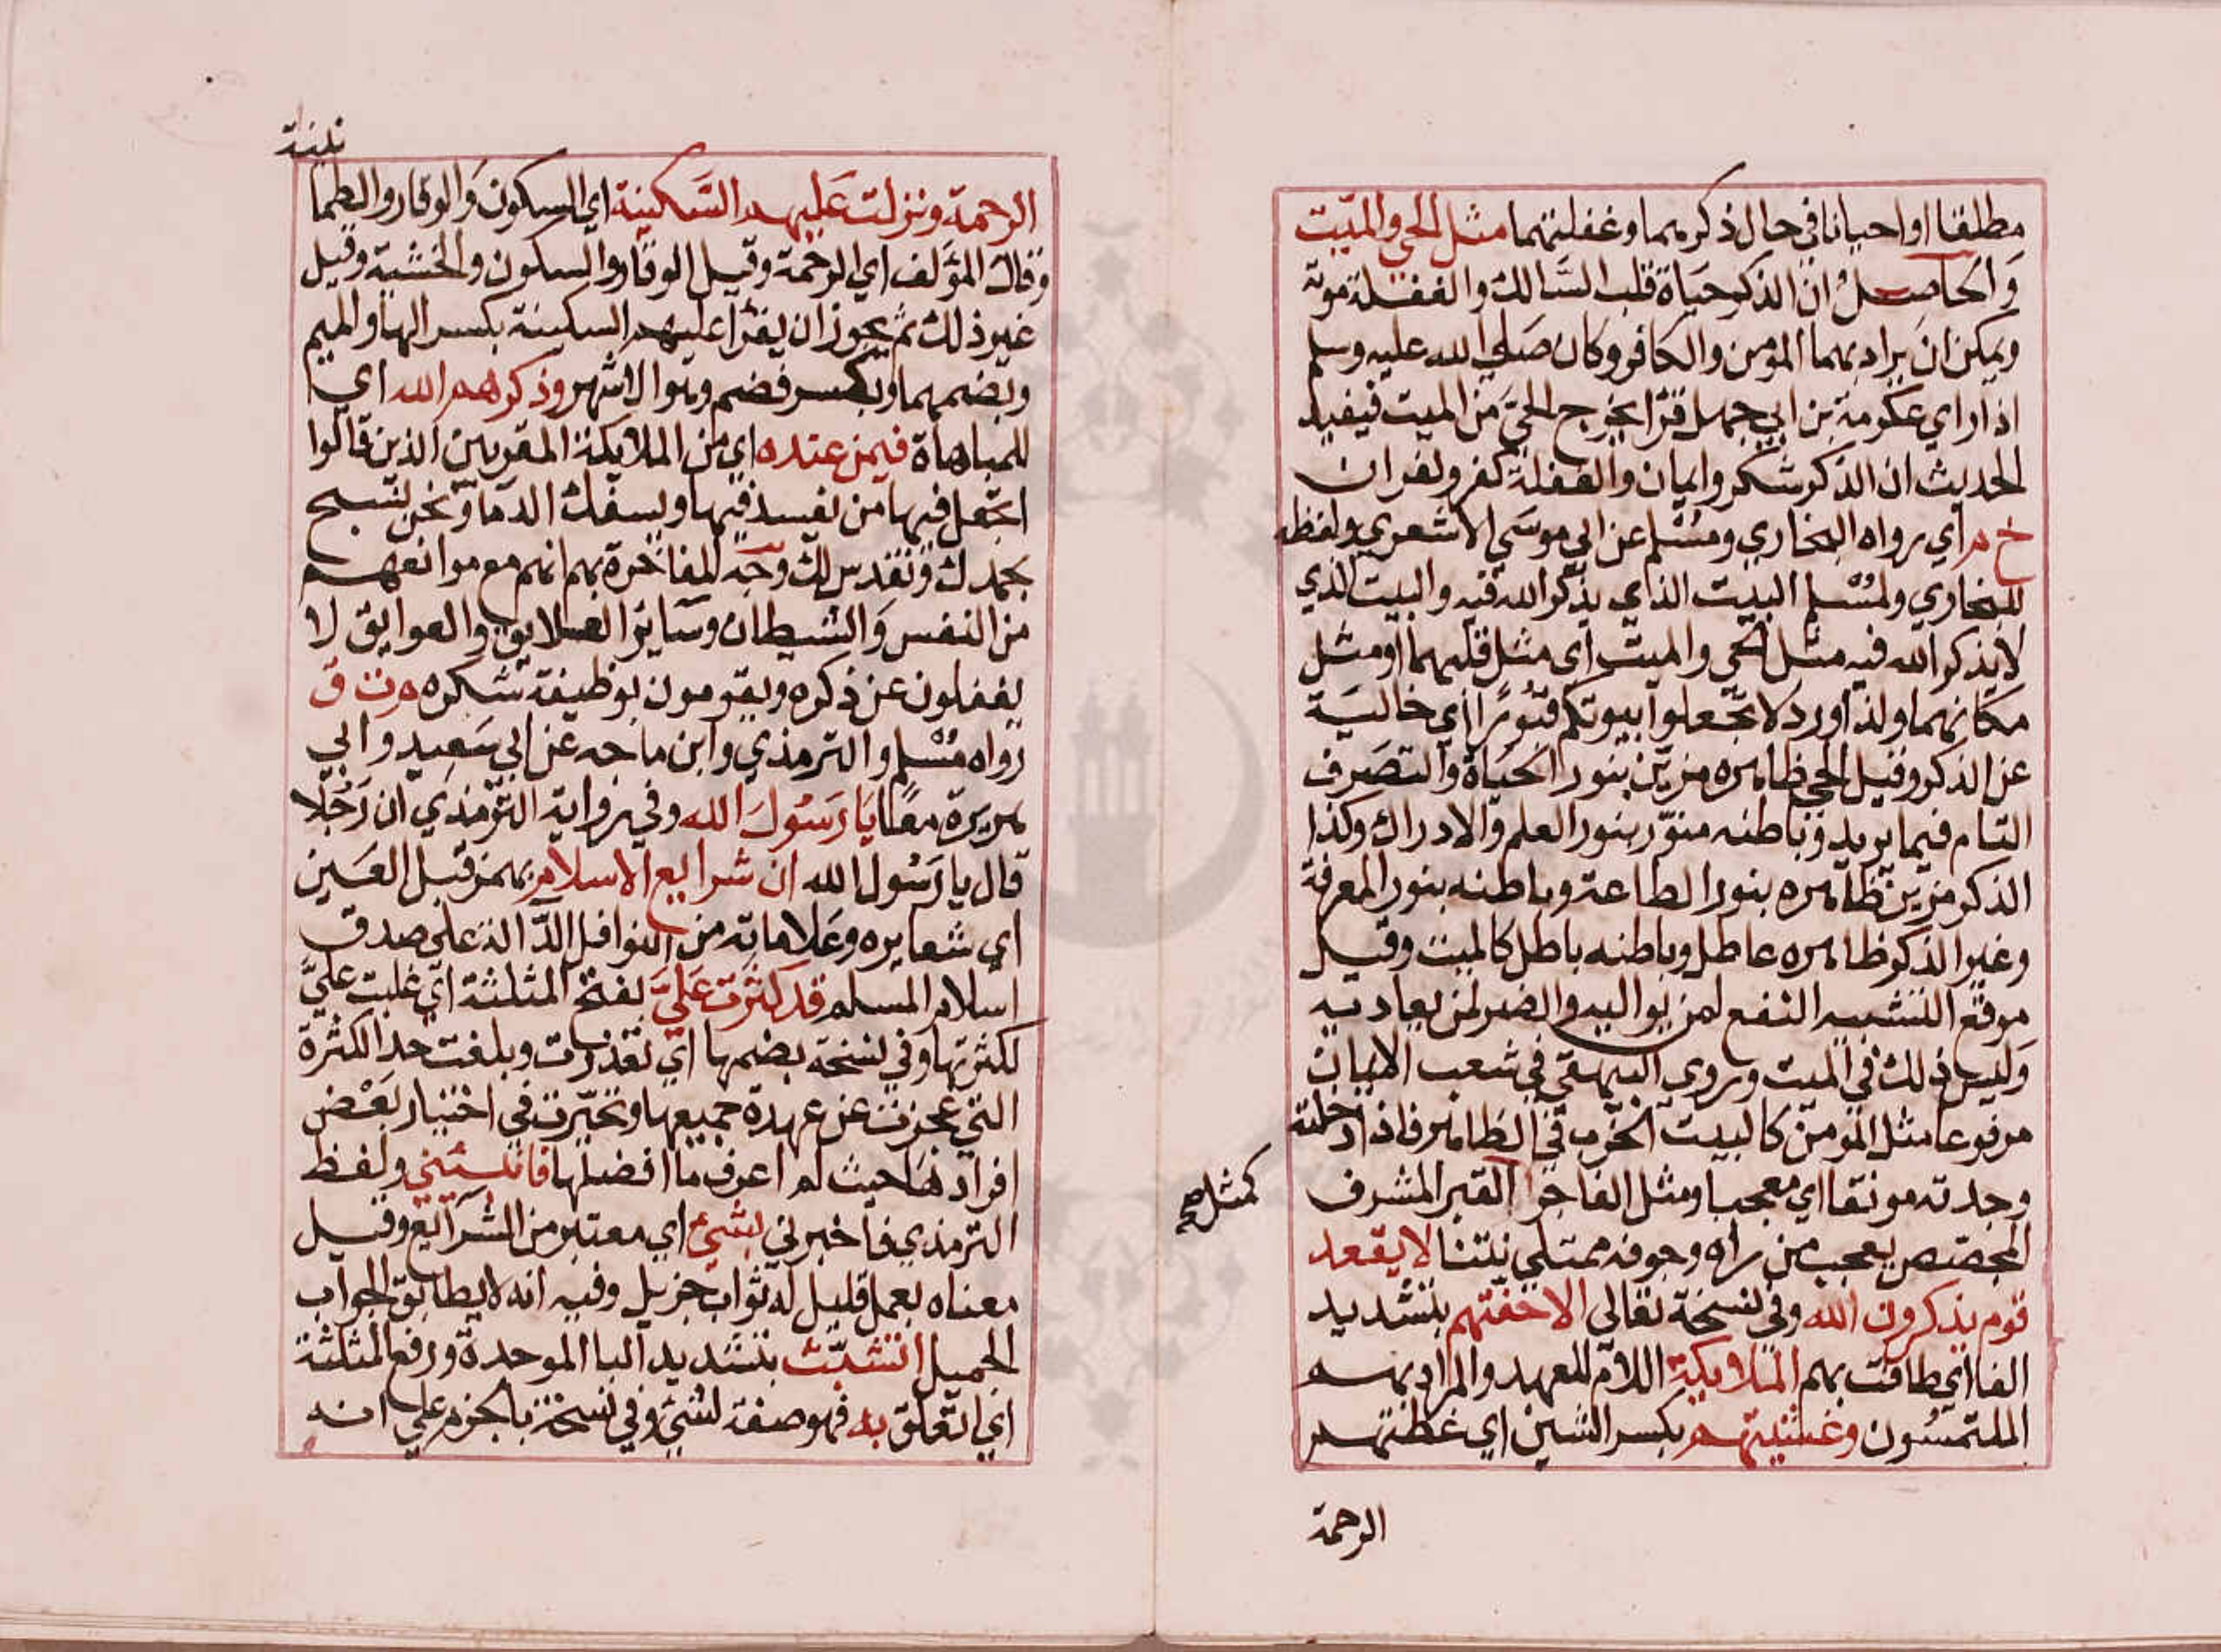 مطلقا او احيانا في حال ذكرهما وغفلتهما مثل الحي والميت
والحاصل ان الذكر حياة قلب السالك والغفلة موته
ويمكن ان يراد بهما المؤمن والكافر وكان صلي الله عليه وسلم
اذا راي عكرمة بن ابي جهل قرا يخرج الحي من الميت فيفيد
الحديث ان الذكر شكر وايمان والغفلة كفر وكفران
خ م اي رواه البخاري ومسلم عن ابي موسي الاشعري ولفظه
للبخاري ولمسلم البيت الذي يذكر الله فيه والبيت الذي
لا يذكر الله فيه مثل الحي والميت اي مثل قلبهما او مثل
مكانهما ولذا ورد لا تجعلوا بيوتكم قبورا اي خالية
عن الذكر وقيل الحي ظاهره مزين بنور الحياة والتصرف
التام فيما يريد وباطنه منور بنور العلم والادراك وكذا
الذكر مزين ظاهره بنور الطاعة وباطنه بنور المعرفة
وغير الذكر ظاهره عاطل وباطنه باطل كالميت وقيل
موقع التشبيه النفع لمن يواليه والضر لمن يعاديه
وليس ذلك في الميت وروي البيهقي في شعب الايمان
مرفوعا مثل المؤمن كالبيت الخرب في الظاهر فاذا دخلته
وجدته مونقا اي معجبا ومثل الفاجر القبر المشرف
كمثل صح
المجصص يعجب من راه وجوفه ممتلي نتنا لا يقعد
قوم يذكرون الله وفي نسخة تعالي الا حفتهم بتشديد
الفا اي طافت بهم الملايكة اللام للعهد والمراد بهم
الملتمسون وغشيتهم بكسر الشين اي غطتهم
الرحمة
الرحمة ونزلت عليهم السكينة اي السكون والوقار والطما
وقال المؤلف اي الرحمة وقيل الوقار والسكون والخشية وقيل
غير ذلك ثم يجوز ان يقرا عليهم السكينة بكسر الها والميم
وبضمهما وبكسر فضم وهو الاشهر وذكرهم الله اي
للمباهاة فيمن عنده اي من الملايكة المقربين الذين قالوا
اتجعل فيها من يفسد فيها ويسفك الدما ونحن نسبح
بحمدك ونقدس لك وجه المفاخرة بهم انهم مع موانعهم
من النفس والشيطان وساير العلايق والعوايق لا
يغفلون عن ذكره ويقومون بوظيفة شكره م ت ق
رواه مسلم والترمذي وابن ماجه عن ابي سعيد وابي
هريرة معا يا رسول الله وفي رواية الترمذي ان رجلا
قال يا رسول الله ان شرايع الاسلام بهمز قبل العين
اي شعايره وعلاماته من النوافل الدالة علي صدق
اسلام المسلم قد كثرت علي بفتح المثلثة اي غلبت علي
لكثرتها وفي نسخة بضمها اي تعذرت وبلغت حد الكثرة
التي عجزت عن عهدة جميعها وتحيرت في اختيار بعض
افرادها حيث لم اعرف ما افضلها فانبئني ولفظ
الترمذي فاخبرني بشئ اي معتبر من الشرايع وقيل
معناه بعمل قليل له ثواب جزيل وفيه انه لا يطابق الجواب
الجميل اتشبث بتشديد البا الموحدة ورفع المثلثة
اي اتعلق به فهو صفة لشئ وفي نسخة بالجزم علي انه